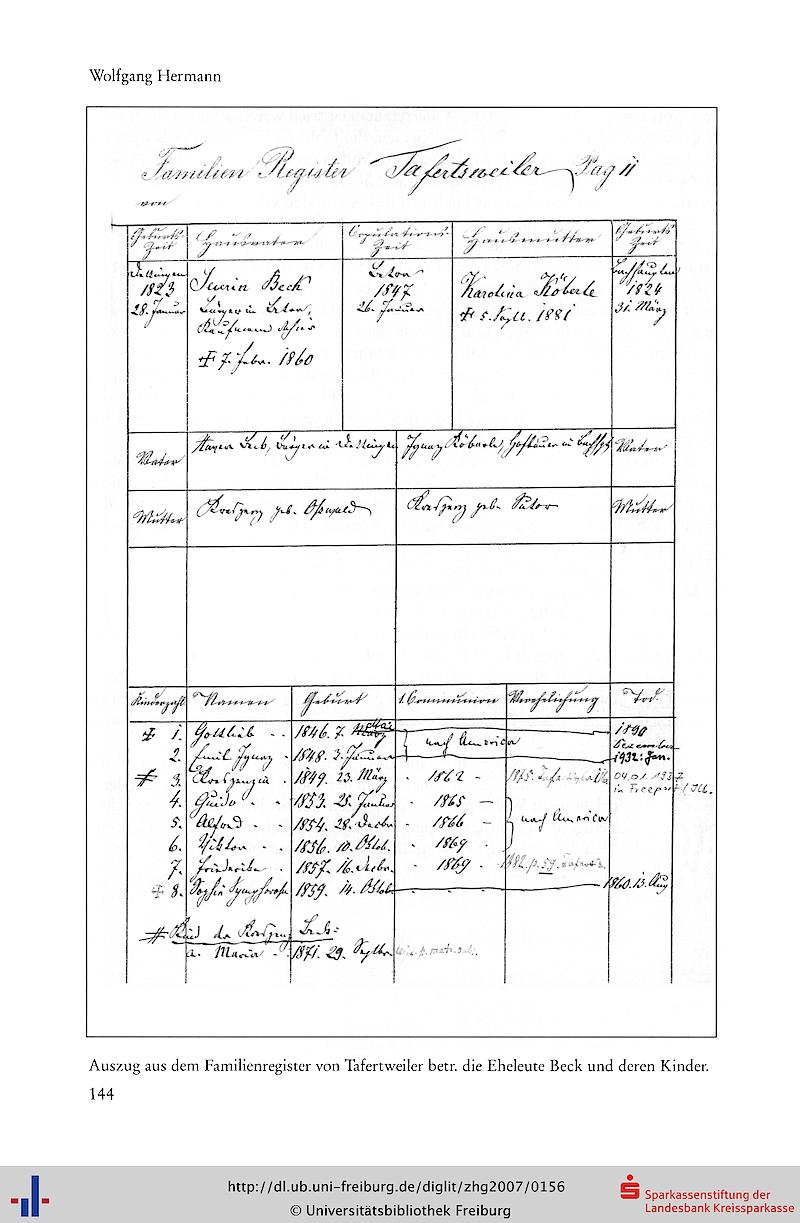 Wolfgang Hermann
Familien Register Tafertsweiler Pag 11
von
Geburts- Zeit Hausvater Copulations Zeit Hausmutter Geburts Zeit
1823 Severin Beck 1847 Karolina Köberle 1824
28. Januar Bürger in 26. Januar ✝ 5. Septb. 1881 31. März
Kaufmann
✝ 7. Febr. 1860
Vater Bürger in Ignaz Köberle, Hofbauer in Vater
Mutter Kreszenz geb. Oßwald Kreszenz geb. Sutor Mutter
Kinderzahl Namen Geburt 1. Communion Verehelichung Tod.
✝ 1. Gottlieb - - 1846. 7. Mai nach America 1890
Dezember
2. Emil Ignaz - 1848. 2. Januar 1932: Jan.
# 3. Kreszenzia - 1849. 23. März - 1862 - 1875. 04.01.1937
in Freeport Ill.
4. Guido - - 1853. 25. Januar - 1865 -
5. Alfred - - 1854. 28. Decbr - 1866 - nach America
6. Viktor - - 1856. 10. Oktob. - 1869 -
7. Friederike - 1857. 16. Decbr. - 1869 -
✝ 8. Sophie Symphorosa 1859. 14. Oktob. 1860. 13. Aug
# Kind der Kreszenz Beck:
a. Maria - 1871. 29. Septbr
Auszug aus dem Familienregister von Tafertweiler betr. die Eheleute Beck und deren Kinder.
144
http://dl.ub.uni-freiburg.de/diglit/zhg2007/0156
© Universitätsbibliothek Freiburg
Sparkassenstiftung der
Landesbank Kreissparkasse